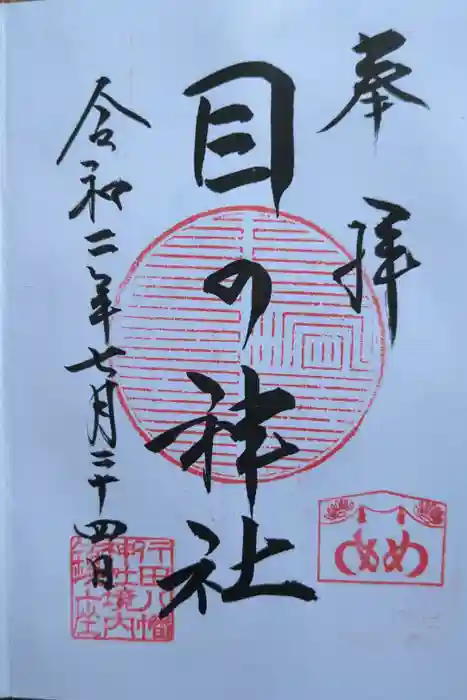 奉拝
目の神社
令和二年七月二十四日
行田八幡
神社境内
め